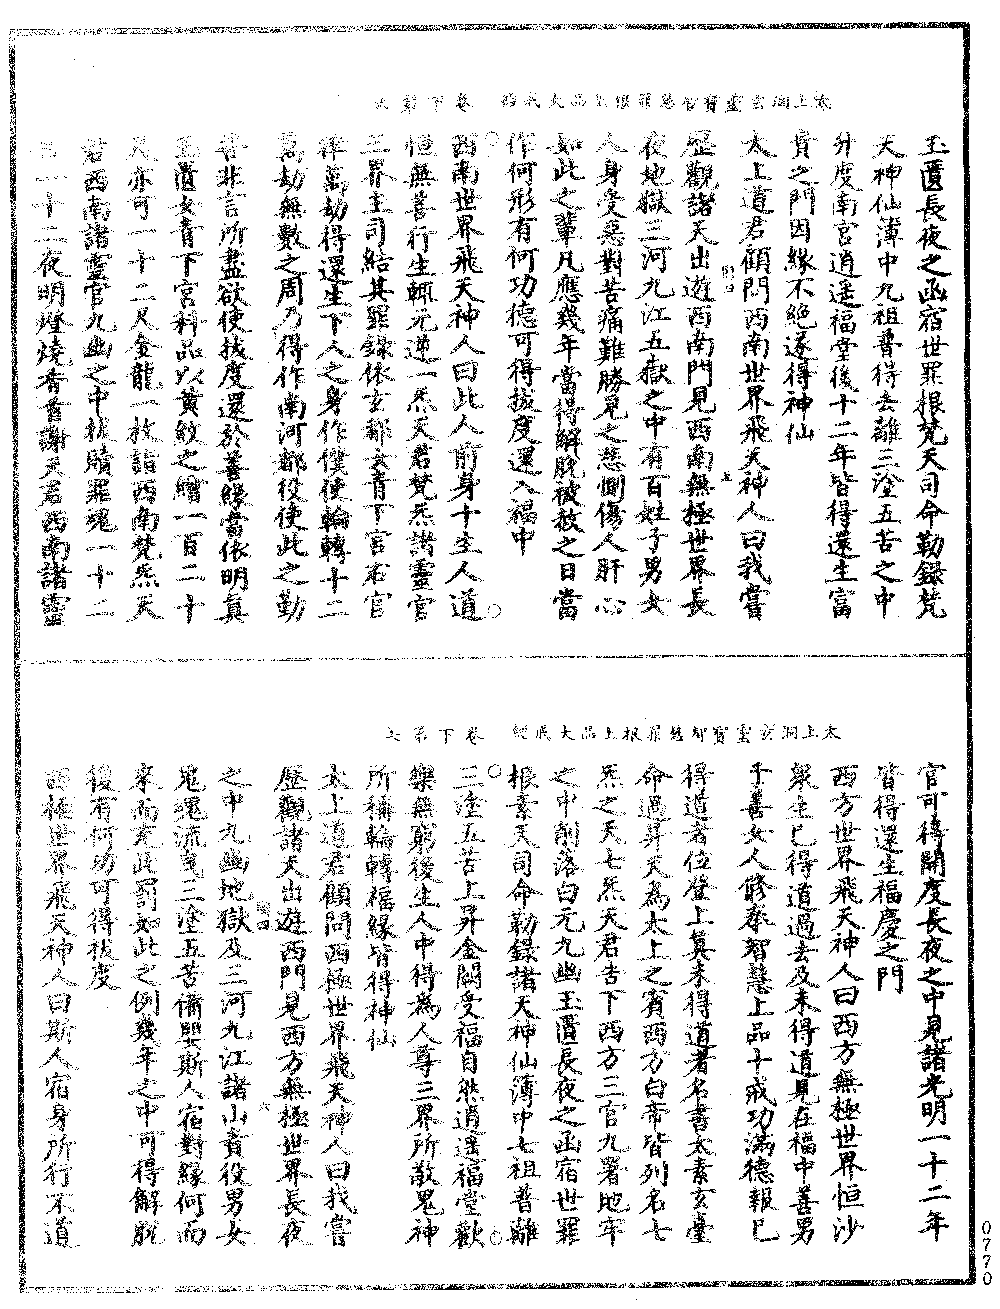 太上洞玄靈寶智慧罪根上品大戒經 卷下第五
玉匱長夜之函宿世罪根梵天司命勒錄梵
天神仙薄中九祖普得去離三塗五苦之中
升度南宮逍遥福堂後十二年皆得還生富
貴之門因緣不絕遂得神仙
太上道君顧問西南世界飛天神人曰我嘗
歷觀諸天出遊西南門見西南無極世界長
夜地獄三河九江五嶽之中有百姓子男女
人身受惡對苦痛難勝見之慈惻傷人肝心
如此之輩凡應幾年當得解脫被放之日當
作何形有何功德可得拔度還入福中
西南世界飛天神人曰此人前身十生人道
恒無善行生輒元逆一炁天君梵炁諸靈官
三界主司結其罪錄依玄都女青下宮右官
律萬劫得還生下人之身作僕使輪轉十二
萬劫無數之周乃得作南河都役使此之勤
苦非言所盡欲使拔度還於善緣當依明真
玉匱女青下宮科品以黃紋之繒一百二十
尺亦可一十二尺金龍一枚詣西南梵炁天
君西南諸靈官九幽之中拔贖罪魂一十二
日一十二夜明燈燒香首謝天君西南諸靈
太上洞玄靈寶智慧罪根上品大戒經 卷下第六
官可得開度長夜之中見諸光明一十二年
皆得還生福慶之門
西方世界飛天神人曰西方無極世界恒沙
衆生已得道過去及未得道見在福中善男
子善女人修奉智慧上品十戒功滿德報已
得道者位登上真未得道者名書太素玄臺
命過昇天為太上之賓西方白帝皆列名七
炁之天七炁天君告下西方三官九署地牢
之中削落白元九幽玉匱長夜之函宿世罪
根素天司命勒錄諸天神仙薄中七祖普離
三塗五苦上昇金闕受福自然逍遥福堂歡
樂無窮後生人中得為人尊三界所敬鬼神
所稱輪轉福緣皆得神仙
太上道君顧問西極世界飛天神人曰我嘗
歷觀諸天出遊西門見西方無極世界長夜
之中九幽地獄及三河九江諸山責役男女
鬼魂流曳三塗五苦備嬰斯人宿對緣何而
來而充此罰如此之例幾年之中可得解脫
復有何功可得拔度
西極世界飛天神人曰斯人宿身所行不道
0770